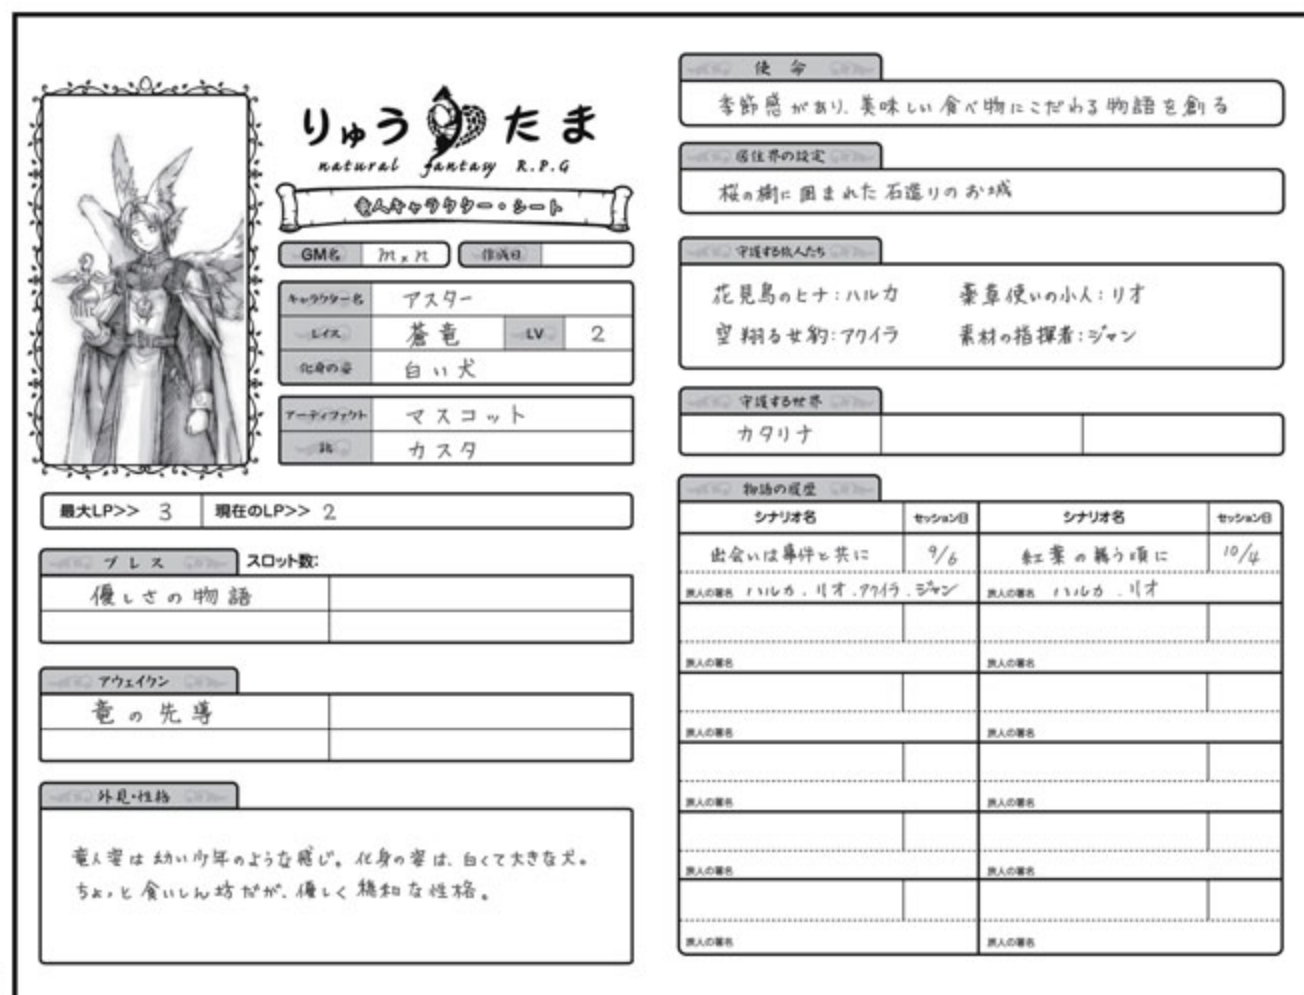 りゅうたま
natural fantasy R.P.G
竜人キャラクター・シート
GM名 m×n 作成日
キャラクター名 アスター
レイス 蒼竜 LV 2
化身の姿 白い犬
アーティファクト マスコット
カスタ
最大LP>> 3 現在のLP>> 2
ブレス スロット数:
優しさの物語
アウェイクン
竜の先導
外見・性格
竜人姿は幼い少年のような感じ。化身の姿は、白くて大きな犬。
ちょっと食いしん坊だが、優しく穏和な性格。
使命
季節感があり、美味しい食べ物にこだわる物語を創る
居住界の設定
桜の樹に囲まれた石造りのお城
守護する旅人たち
花見鳥のヒナ:ハルカ 薬草使いの小人:リオ
空翔る女豹:アクイラ 素材の指揮者:ジャン
守護する世界
カタリナ
物語の履歴
シナリオ名 セッション日 シナリオ名 セッション日
出会いは事件と共に 9/6 紅葉の舞う頃に 10/4
旅人の署名 ハルカ.リオ.アクイラ.ジャン 旅人の署名 ハルカ.リオ
旅人の署名 旅人の署名
旅人の署名 旅人の署名
旅人の署名 旅人の署名
旅人の署名 旅人の署名
旅人の署名 旅人の署名